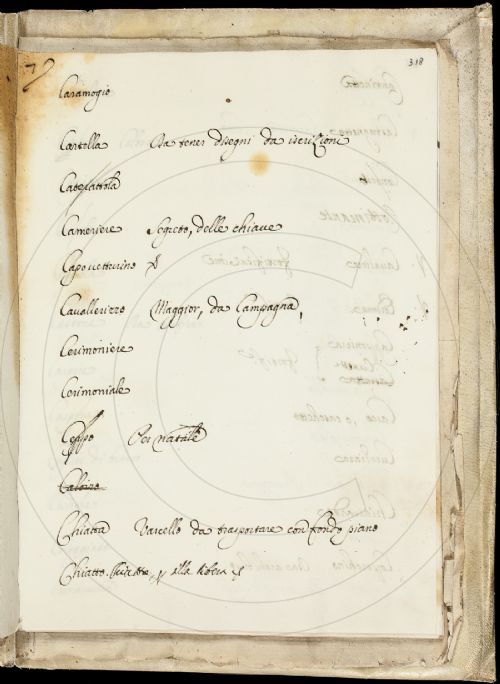 318
Caramogio
Cartella Da tener disegni da iscrizioni
Catapattola
Cameriere Segreto, delle chiave
Capovetturino
Cavallerizzo Maggior, da Campagna,
Cerimoniere
Cerimoniale
Ceppo Per natale
Chiatta Varcello da trasportare con fondo piano
Chiatto. alla